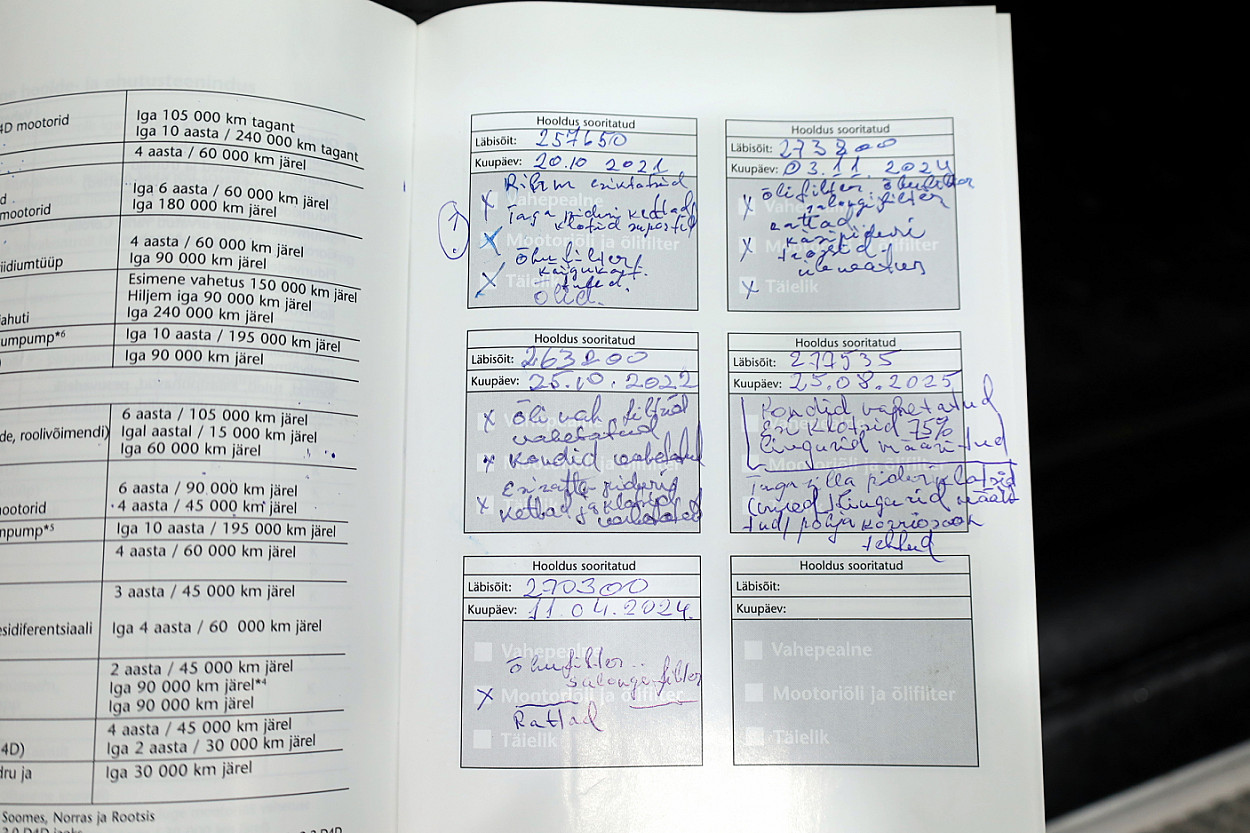 4D mootorid
Iga 105 000 km tagant
Iga 10 aasta / 240 000 km tagant
4 aasta / 60 000 km järel
Iga 6 aasta / 60 000 km järel
mootorid
Iga 180 000 km järel
4 aasta / 60 000 km järel
iidiumtüüp
Iga 90 000 km järel
Esimene vahetus 150 000 km järel
Hiljem iga 90 000 km järel
ahuti
Iga 240 000 km järel
umpump*6
Iga 10 aasta / 195 000 km järel
Iga 90 000 km järel
6 aasta / 105 000 km järel
de, roolivõimendi)
Igal aastal / 15 000 km järel
Iga 60 000 km järel
6 aasta / 90 000 km järel
ootorid
4 aasta / 45 000 km järel
npump*5
Iga 10 aasta / 195 000 km järel
4 aasta / 60 000 km järel
3 aasta / 45 000 km järel
esidiferentsiaali
Iga 4 aasta / 60 000 km järel
2 aasta / 45 000 km järel
Iga 90 000 km järel*4
Iga 90 000 km järel
4 aasta / 45 000 km järel
4D)
Iga 2 aasta / 30 000 km järel
dru ja
Iga 30 000 km järel
Soomes, Norras ja Rootsis
Hooldus sooritatud
Läbisõit: 257650
Kuupäev: 20.10 2021
Vahepealne
Taga piduri kettad
klotsid suportid
Mootoriõli ja õlifilter
Õhufilter
Täielik
õlid.
Hooldus sooritatud
Läbisõit: 273800
Kuupäev: 03.11.2024
õlifilter õhufilter
salongifilter
rattad
käsipiduri
trossid
Täielik
Hooldus sooritatud
Läbisõit: 263200
Kuupäev: 25.10.2022
õli vah filtrid
vahetatud
kondid vahetatud
Esiratta pidurid
kettad ja klotsid
vahetatud
Hooldus sooritatud
Läbisõit: 277535
Kuupäev: 25.08.2025
kondid vahetatud
Esi klotsid 75%
liugurid määritud
Mootoriõli ja õlifilter
Taga silla piduriklotsid
liugurid määri
tud/ põhja korrosioon
tehtud
Hooldus sooritatud
Läbisõit: 270300
Kuupäev: 11.04.2024.
Vahepealne
õhufilter
salongifilter
Mootoriõli ja õlifilter
Rattad
Täielik
Hooldus sooritatud
Läbisõit:
Kuupäev:
Vahepealne
Mootoriõli ja õlifilter
Täielik